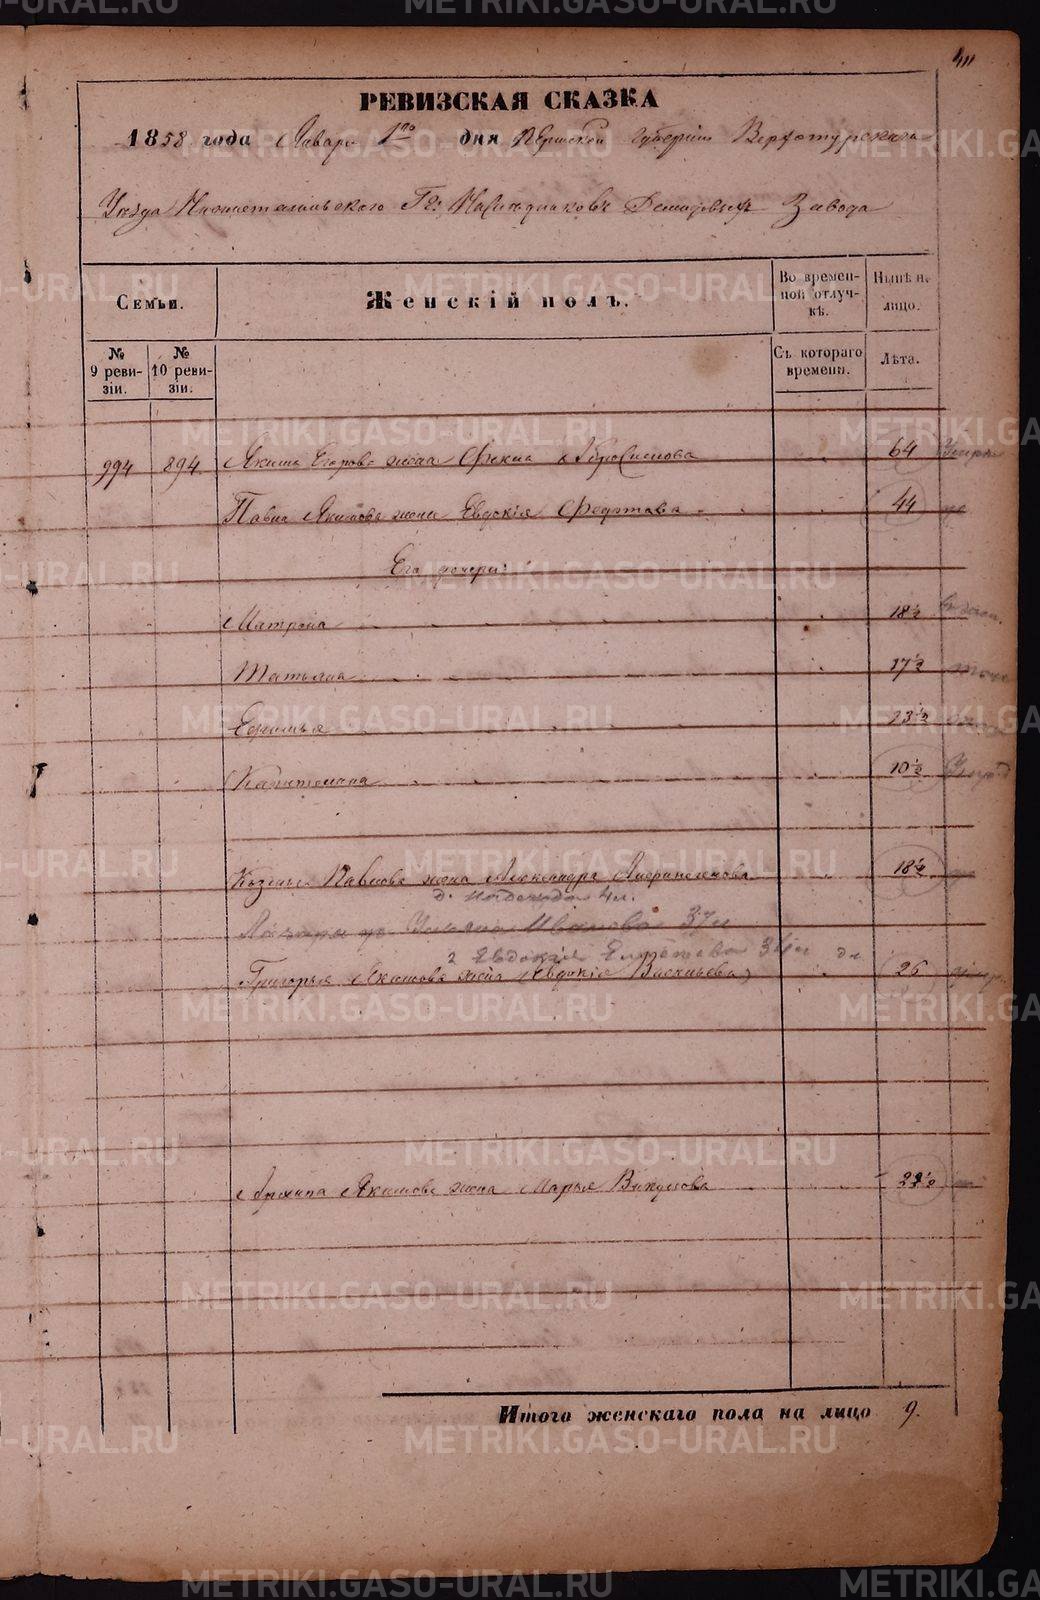 411
РЕВИЗСКАЯ СКАЗКА
1858 года Января 1го дня Пермской Губернии Верхотурскаго
Уезда Нижнетагильскаго Гг. Наследниковъ Демидовыхъ Завода
Семьи.
Женскій полъ.
Во времен-
ной отлуч-
кѣ.
Нынѣ на
лицо.
№
9 реви-
зіи.
№
10 реви-
зіи.
Съ котораго
времени.
Лѣта.
994 894 Якима Егорова жена Фекла 64
Павла Якимова жена Евдокія Федотова 44
Его дочери:
Матрена 18½
Татьяна 17½
Ефимья 13½
Капитолина 10½
Козьмы Павлова жена Александра 18½
д. Надежда 4 л.
Иванова 37 л
2 Евдокія 34 л
Григорья Якимова жена Евдокія Васильева 26
Архипа Якимова жена Марья Викулова 22½
Итого женскаго пола на лицо 9.
METRIKI.GASO-URAL.RU